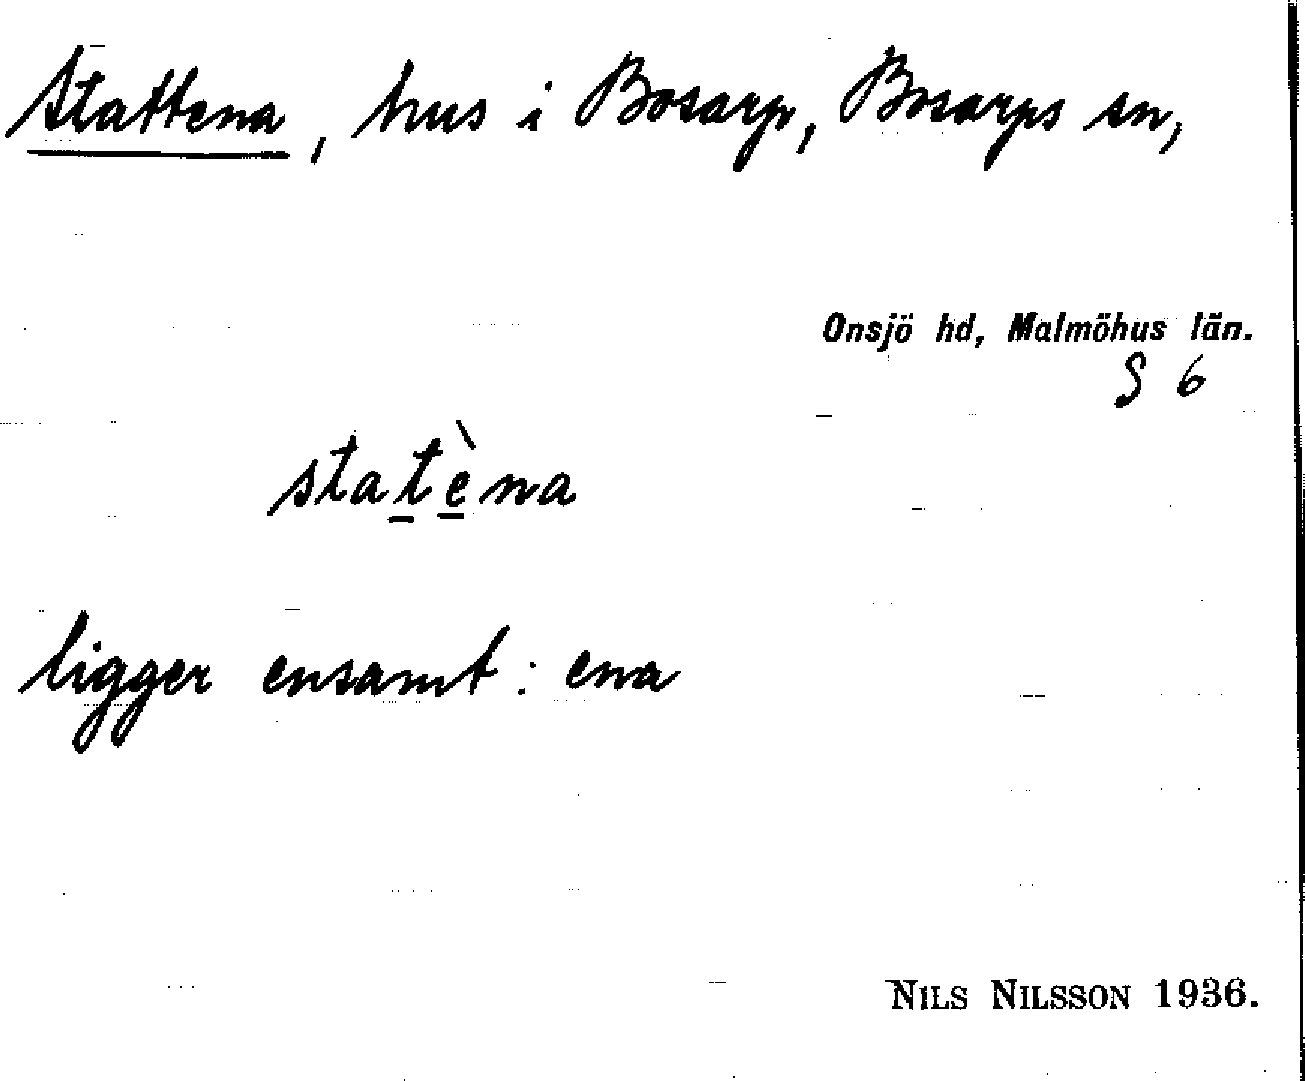 Stattena, hus i Bosarp, Bosarps sn,
Onsjö hd, Malmöhus län.
S 6
statèna
ligger ensamt : ena
NILS NILSSON 1936.